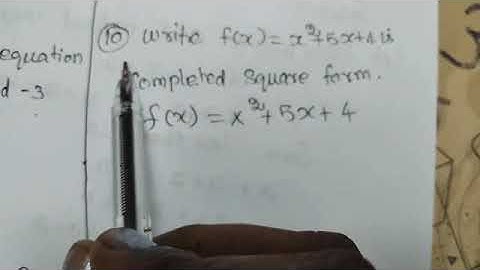 equation
d -3
⑩ Write f(x) = x²+5x+4 is
completed square form.
f(x) = x²+5x+4